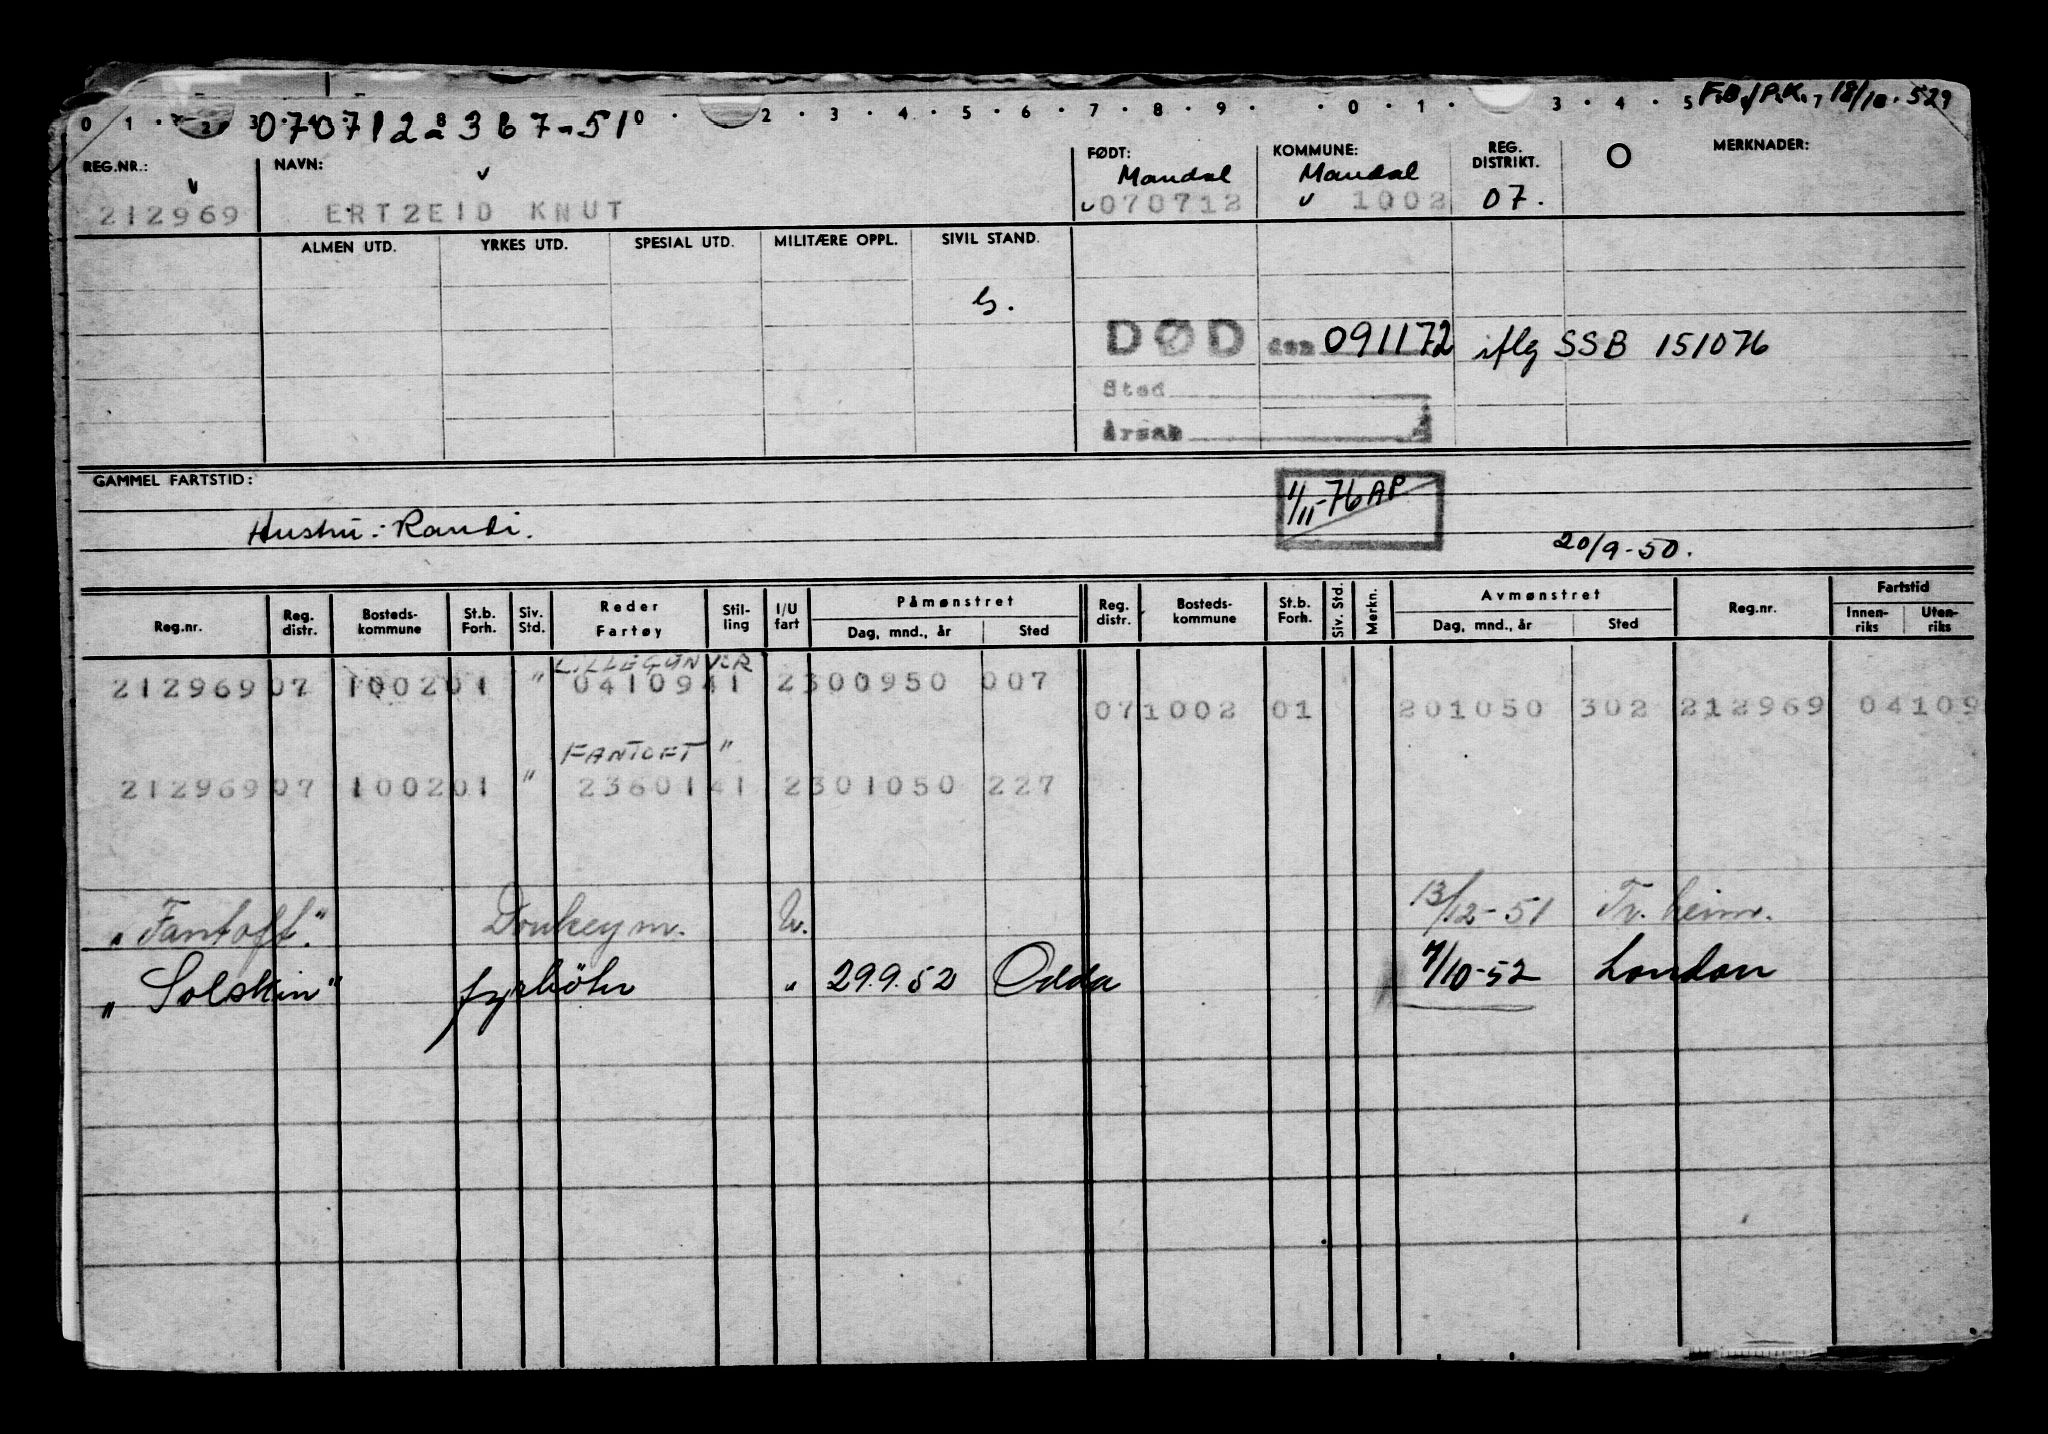 F.D./P.K., 18/10.52
0 1 2 3 070712-367-51 0 2 3 4 5 6 7 8 9 0 1 3 4 5 7 9
REG.NR.: NAVN: FØDT: KOMMUNE: REG. DISTRIKT. MERKNADER:
Mandal Mandal
212969 ERTZEID KNUT 070712 1002 07.
ALMEN UTD. YRKES UTD. SPESIAL UTD. MILITÆRE OPPL. SIVIL STAND.
G.
DØD den 091172 iflg SSB 151076
Sted
Årsak
GAMMEL FARTSTID:
1/11-76 AP
Hustru: Randi.
20/9-50.
Reg.nr. Reg. distr. Bosteds- kommune St.b. Forh. Siv. Std. Reder Fartøy Stil- ling I/U fart Påmønstret Dag, mnd., år Sted Reg. distr. Bosteds- kommune St.b. Forh. Siv. Std. Merkn. Avmønstret Dag, mnd., år Sted Reg.nr. Fartstid Innen- riks Uten- riks
LILLEGUNVER
212969 07 1002 01 " 04109 41 2 300950 007
07 1002 01 201050 302 212969 04109
FANTOFT "
212969 07 1002 01 " 23601 41 2 301050 227
"Fantoft." Donkeym. U. 13/12-51 Tr.heim.
"Solskin" fyrböter " 29.9.52 Odda 7/10-52 London